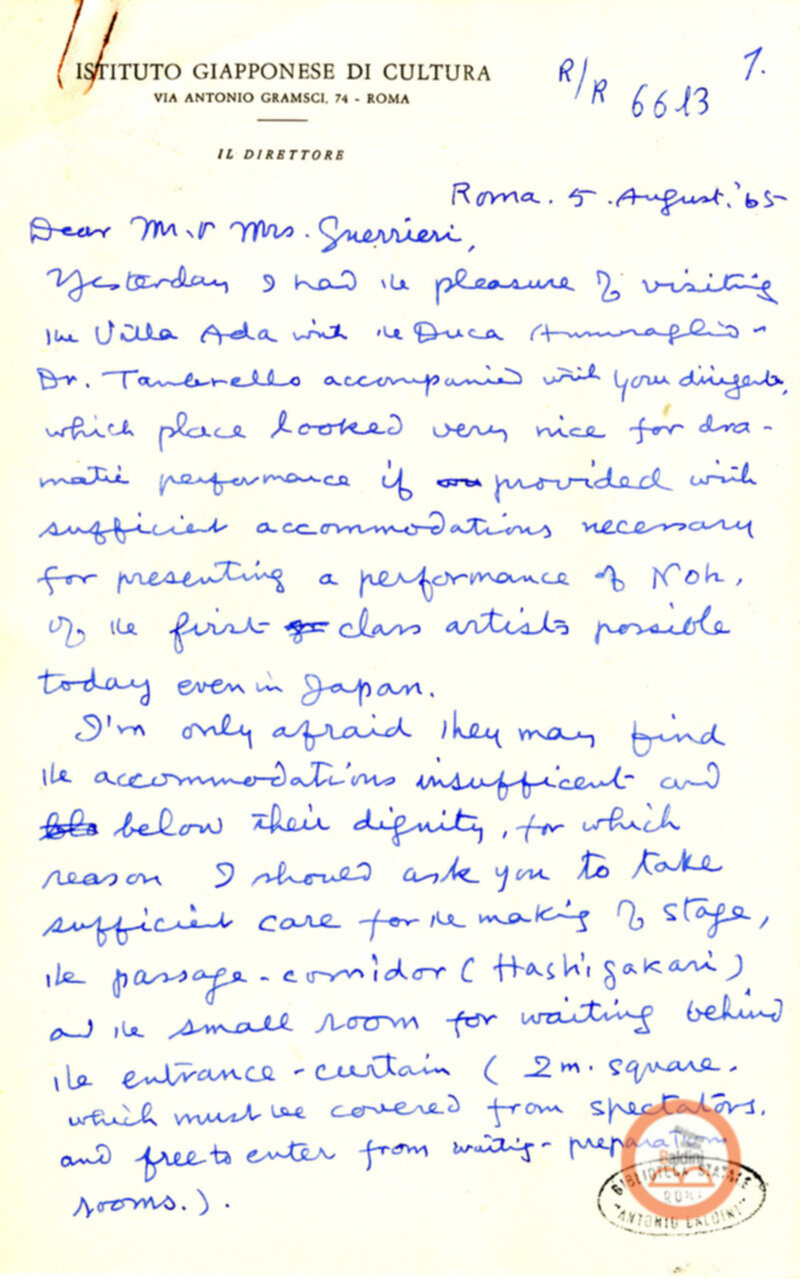 ISTITUTO GIAPPONESE DI CULTURA
VIA ANTONIO GRAMSCI, 74 - ROMA
IL DIRETTORE
R/R 6613
1.
Roma. 5. August. '65
Dear Mr. & Mrs. Guerrieri,
Yesterday I had the pleasure of visiting
the Villa Ada with the Duca
Dr. accompanied with your
which place looked very nice for dra-
matic performance if provided with
sufficient accommodations necessary
for presenting a performance of Noh,
of the first class artists possible
today even in Japan.
I'm only afraid they may find
the accommodations insufficient and
below their dignity, for which
reason I should ask you to take
sufficient care for the making of stage,
the passage-corridor (Hashigakari)
and the small room for waiting behind
the entrance-curtain (2m. square.
which must be covered from spectators.
and free to enter from waitig-preparation
rooms.).
Baldini
BIBLIOTECA STATALE
ROMA
"ANTONIO BALDINI"